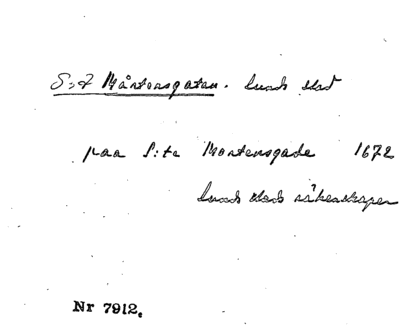 S:t Mårtensgatan. Lunds stad
paa S:te Mortensgade 1672
Lunds stads räkenskaper
Nr 7912.